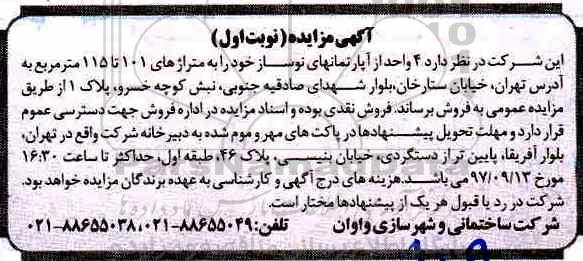 آگهی مزایده (نوبت اول)
این شرکت در نظر دارد ۴ واحد از آپارتمانهای نوساز خود را به متراژهای ۱۰۱ تا ۱۱۵ مترمربع به
آدرس تهران، خیابان ستارخان،بلوار شهدای صادقیه جنوبی، نبش کوچه خسرو، پلاک ۱ از طریق
مزایده عمومی به فروش برساند. فروش نقدی بوده و اسناد مزایده در اداره فروش جهت دسترسی عموم
قرار دارد و مهلت تحویل پیشنهادها در پاکت های مهر و موم شده به دبیرخانه شرکت واقع در تهران،
بلوار آفریقا، پایین تر از دستگردی، خیابان بنیسی، پلاک ۴۶، طبقه اول، حداکثر تا ساعت ۱۶:۳۰
مورخ ۹۷/۰۹/۱۳ می باشد.هزینه های درج آگهی و کارشناسی به عهده برندگان مزایده خواهد بود.
شرکت در رد یا قبول هر یک از پیشنهادها مختار است.
شرکت ساختمانی و شهرسازی واوان تلفن: ۸۸۶۵۵۰۴۹-۰۲۱،۸۸۶۵۵۰۳۸-۰۲۱